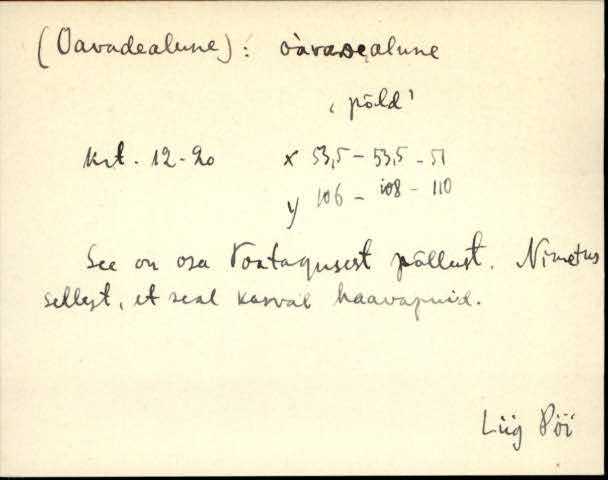 (Oavadealune): òavadealune
‚põld'
krt. 12-20 x 53,5 - 53,5 - 51
y 106 - 108 - 110
See on osa Toataqusest põllust. Nimetus
sellest, et seal kasvab haavapuid.
Liig Pöi